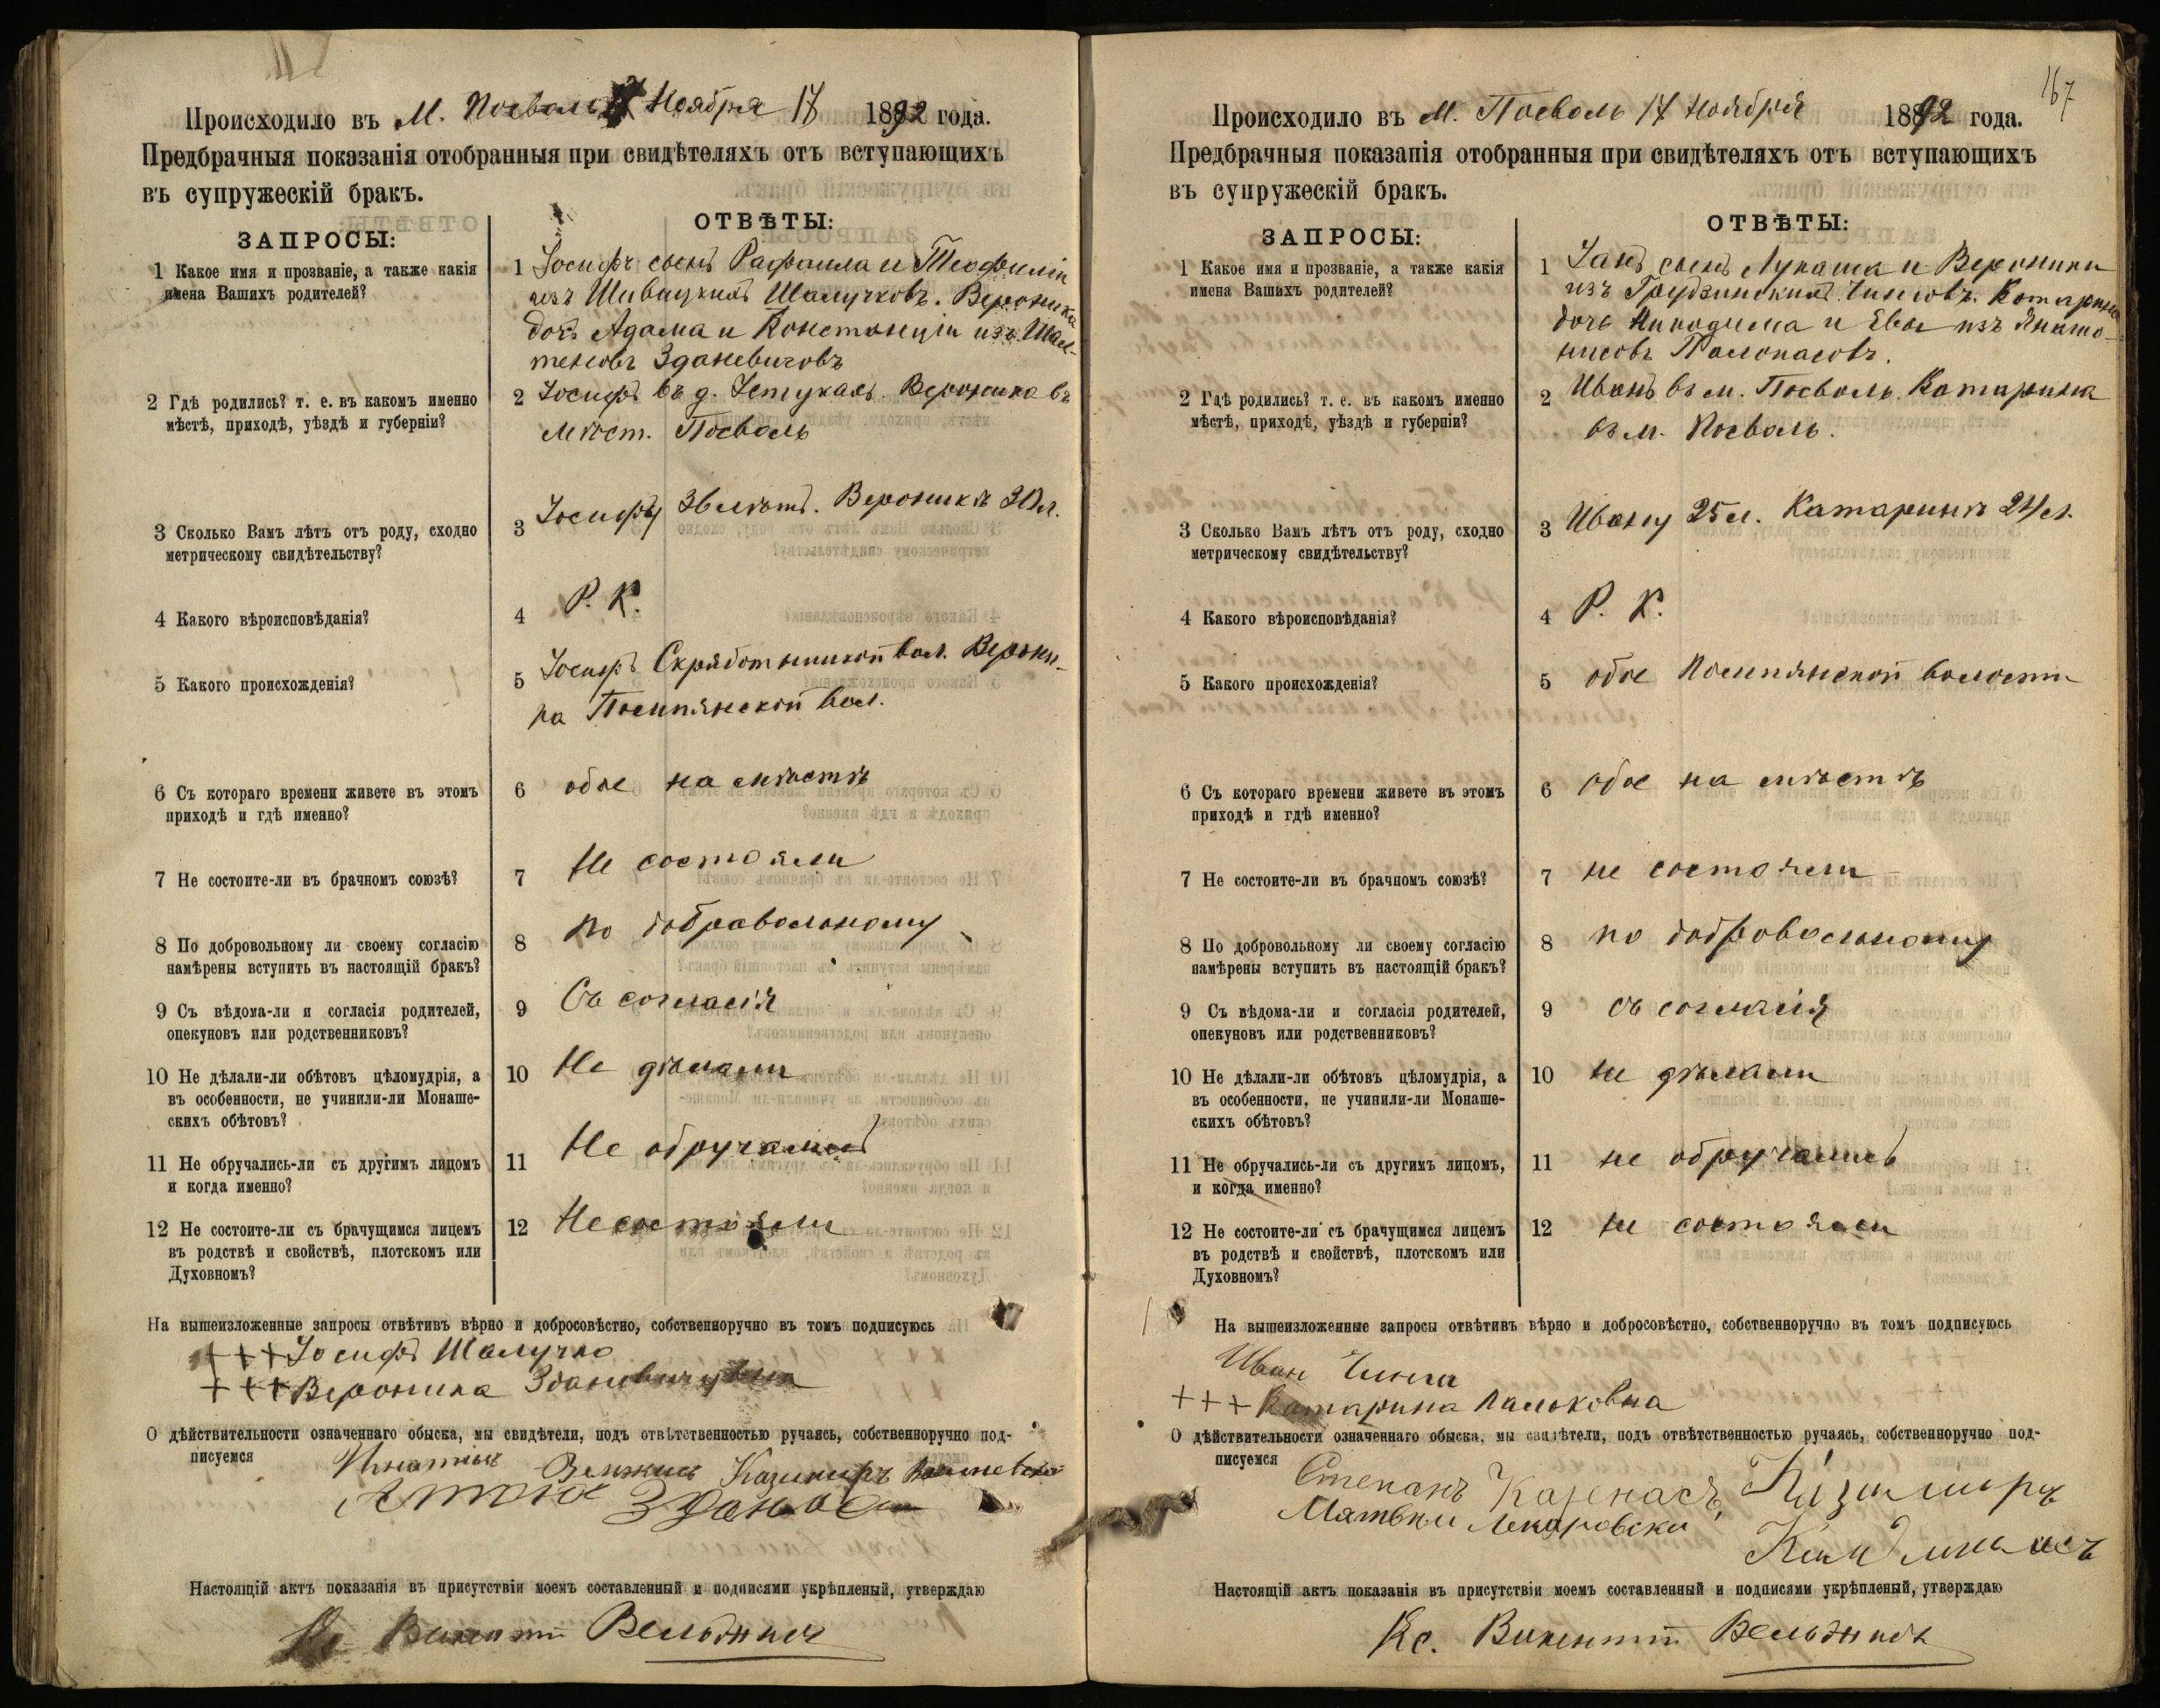 Происходило въ М. Посволь Ноября 17 1892 года.
Предбрачныя показанія отобранныя при свидѣтеляхъ отъ вступающихъ
въ супружескій бракъ.
ЗАПРОСЫ:
ОТВѢТЫ:
1 Какое имя и прозваніе, а также какія
имена Вашихъ родителей?
1 Іосифъ сынъ Рафаила и Теофиліи
изъ Шалучковъ. Вероника
дочь Адама и Констанціи изъ
Здановичовъ
2 Гдѣ родились? т. е. въ какомъ именно
мѣстѣ, приходѣ, уѣздѣ и губерніи?
2 Іосифъ въ д. Вероника въ
Мѣст. Посволь
3 Сколько Вамъ лѣтъ отъ роду, сходно
метрическому свидѣтельству?
3 Іосифу 36 лѣтъ. Вероникѣ 30 л.
4 Какого вѣроисповѣданія?
4 Р. К.
5 Какого происхожденія?
5 Іосифъ вол. Верони-
ка Помпянской вол.
6 Съ котораго времени живете въ этомъ
приходѣ и гдѣ именно?
6 обое на мѣстѣ
7 Не состоите-ли въ брачномъ союзѣ?
7 Не состояли
8 По добровольному ли своему согласію
намѣрены вступить въ настоящій бракъ?
8 по добравольному
9 Съ вѣдома-ли и согласія родителей,
опекуновъ или родственниковъ?
9 Съ согласія
10 Не дѣлали-ли обѣтовъ цѣломудрія, а
въ особенности, не учинили-ли Монаше-
скихъ обѣтовъ?
10 Не дѣлали
11 Не обручались-ли съ другимъ лицомъ
и когда именно?
11 Не обручались
12 Не состоите-ли съ брачущимся лицемъ
въ родствѣ и свойствѣ, плотскомъ или
Духовномъ?
12 Не состояли
На вышеизложенные запросы отвѣтивъ вѣрно и добросовѣстно, собственноручно въ томъ подписуюсь
+++ Іосифъ Шалучко
+++ Вероника
О дѣйствительности означеннаго обыска, мы свидѣтели, подъ отвѣтственностью ручаясь, собственноручно под-
писуемся
Казимиръ
Настоящій актъ показанія въ присутствіи моемъ составленный и подписями укрѣпленый, утверждаю
167
Происходило въ М. Посволь 17 Ноября 1892 года.
Предбрачныя показанія отобранныя при свидѣтеляхъ отъ вступающихъ
въ супружескій бракъ.
ЗАПРОСЫ:
ОТВѢТЫ:
1 Какое имя и прозваніе, а также какія
имена Вашихъ родителей?
1 Іанъ сынъ Лукаша и Вероники
изъ Катарина
дочь Никодима и Евы изъ
2 Гдѣ родились? т. е. въ какомъ именно
мѣстѣ, приходѣ, уѣздѣ и губерніи?
2 Иванъ въ м. Посволь. Катарина
въ м. Посволь.
3 Сколько Вамъ лѣтъ отъ роду, сходно
метрическому свидѣтельству?
3 Ивану 25 л. Катаринѣ 24 л.
4 Какого вѣроисповѣданія?
4 Р. К.
5 Какого происхожденія?
5 обое Помпянской волости
6 Съ котораго времени живете въ этомъ
приходѣ и гдѣ именно?
6 обое на мѣстѣ
7 Не состоите-ли въ брачномъ союзѣ?
7 не состояли
8 По добровольному ли своему согласію
намѣрены вступить въ настоящій бракъ?
8 по добровольному
9 Съ вѣдома-ли и согласія родителей,
опекуновъ или родственниковъ?
9 съ согласія
10 Не дѣлали-ли обѣтовъ цѣломудрія, а
въ особенности, не учинили-ли Монаше-
скихъ обѣтовъ?
10 не дѣлали
11 Не обручались-ли съ другихъ лицомъ,
и когда именно?
11 не обручались
12 Не состоите-ли съ брачущимся лицемъ
въ родствѣ и свойствѣ, плотскомъ или
Духовномъ?
12 не состояли
На вышеизложенные запросы отвѣтивъ вѣрно и добросовѣстно, собственноручно въ томъ подписуюсь
Иван
+++ Катарина
О дѣйствительности означеннаго обыска, мы свидѣтели, подъ отвѣтственностью ручаясь, собственноручно под-
писуемся
Степанъ Казимиръ
Настоящій актъ показанія въ присутствіи моемъ составленный и подписями укрѣпленый, утверждаю
Кс. Викентій